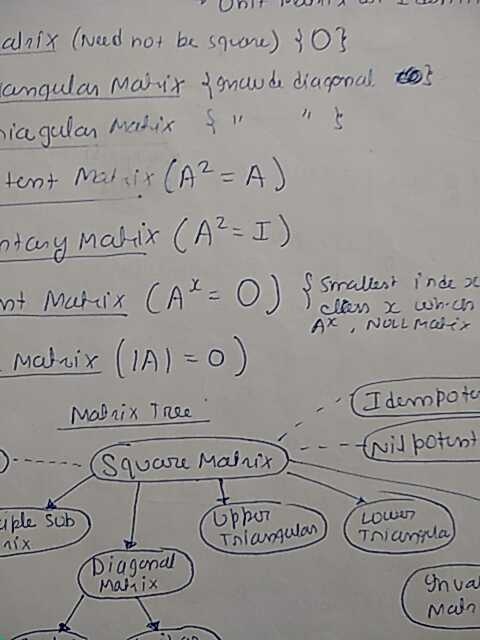 Unit Matrix or Identi
atrix (Need not be square) {O}
iangular Matrix {Include diagonal }
riagular Matrix { " " }
tent Matrix (A² = A)
ntary Matrix (A² = I)
nt Matrix (Aˣ = O) {Smallest index
x which
Aˣ, NULL Matrix
Matrix (|A| = 0)
Matrix Tree
Idempote
Nilpotent
Square Matrix
iple Sub
rix
Upper
Triangular
Lower
Triangula
Diagonal
Matrix
Inva
Matri